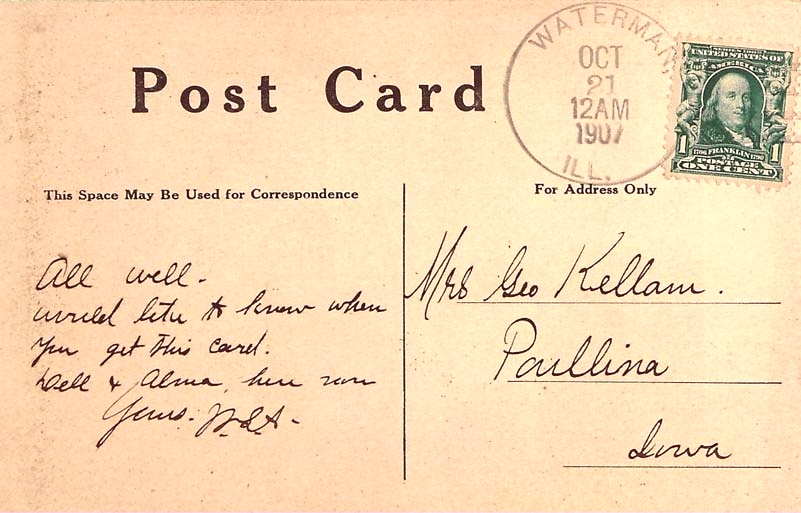 WATERMAN,
OCT
21
12AM
1907
ILL.
SERIES 1902
UNITED STATES OF
AMERICA
1706 FRANKLIN 1790
1 POSTAGE 1
ONE CENT
Post Card
This Space May Be Used for Correspondence
For Address Only
All well.
would like to know when
you get this card.
Dell & Alma here now
Yours.
Mrs Geo Kellam.
Paullina
Iowa